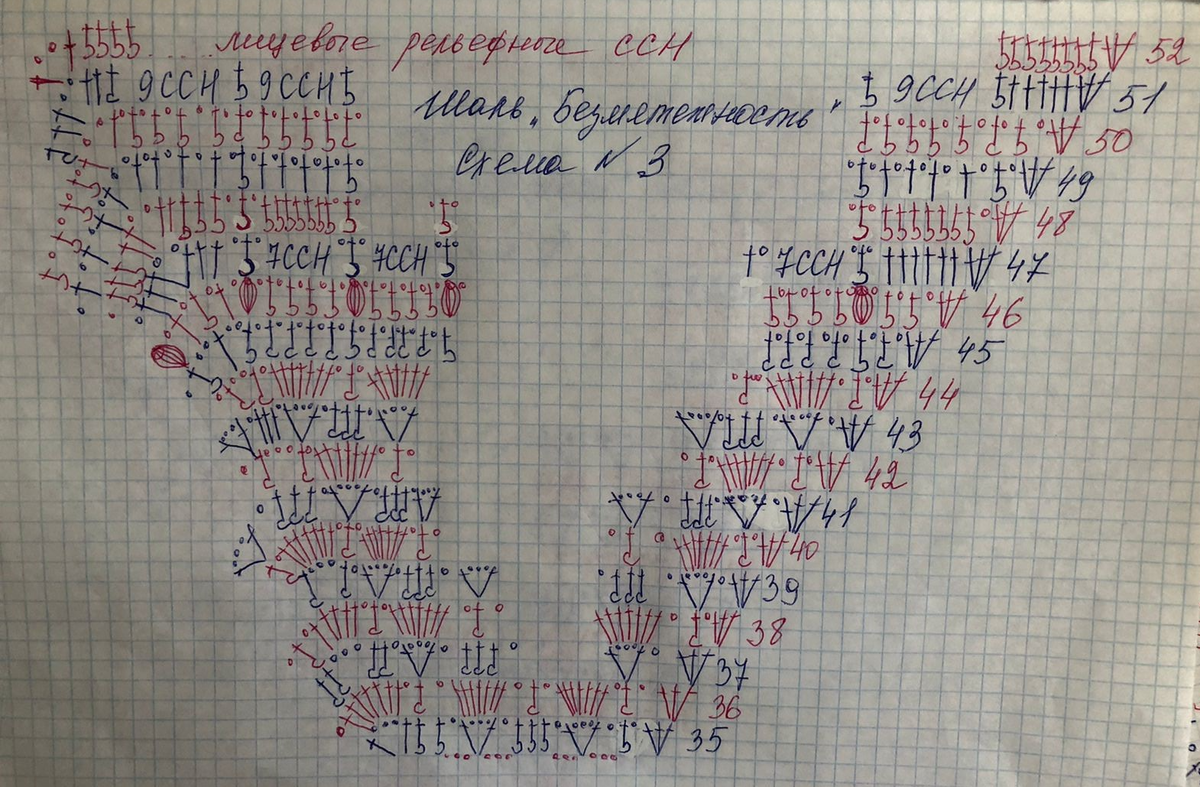 лицевые рельефные ССН 52
9ССН 9ССН 9ССН 51
Шаль „Безмятежность"
50
Схема N 3
49
48
7ССН 7ССН 7ССН 47
46
45
44
43
42
41
40
39
38
37
36
35